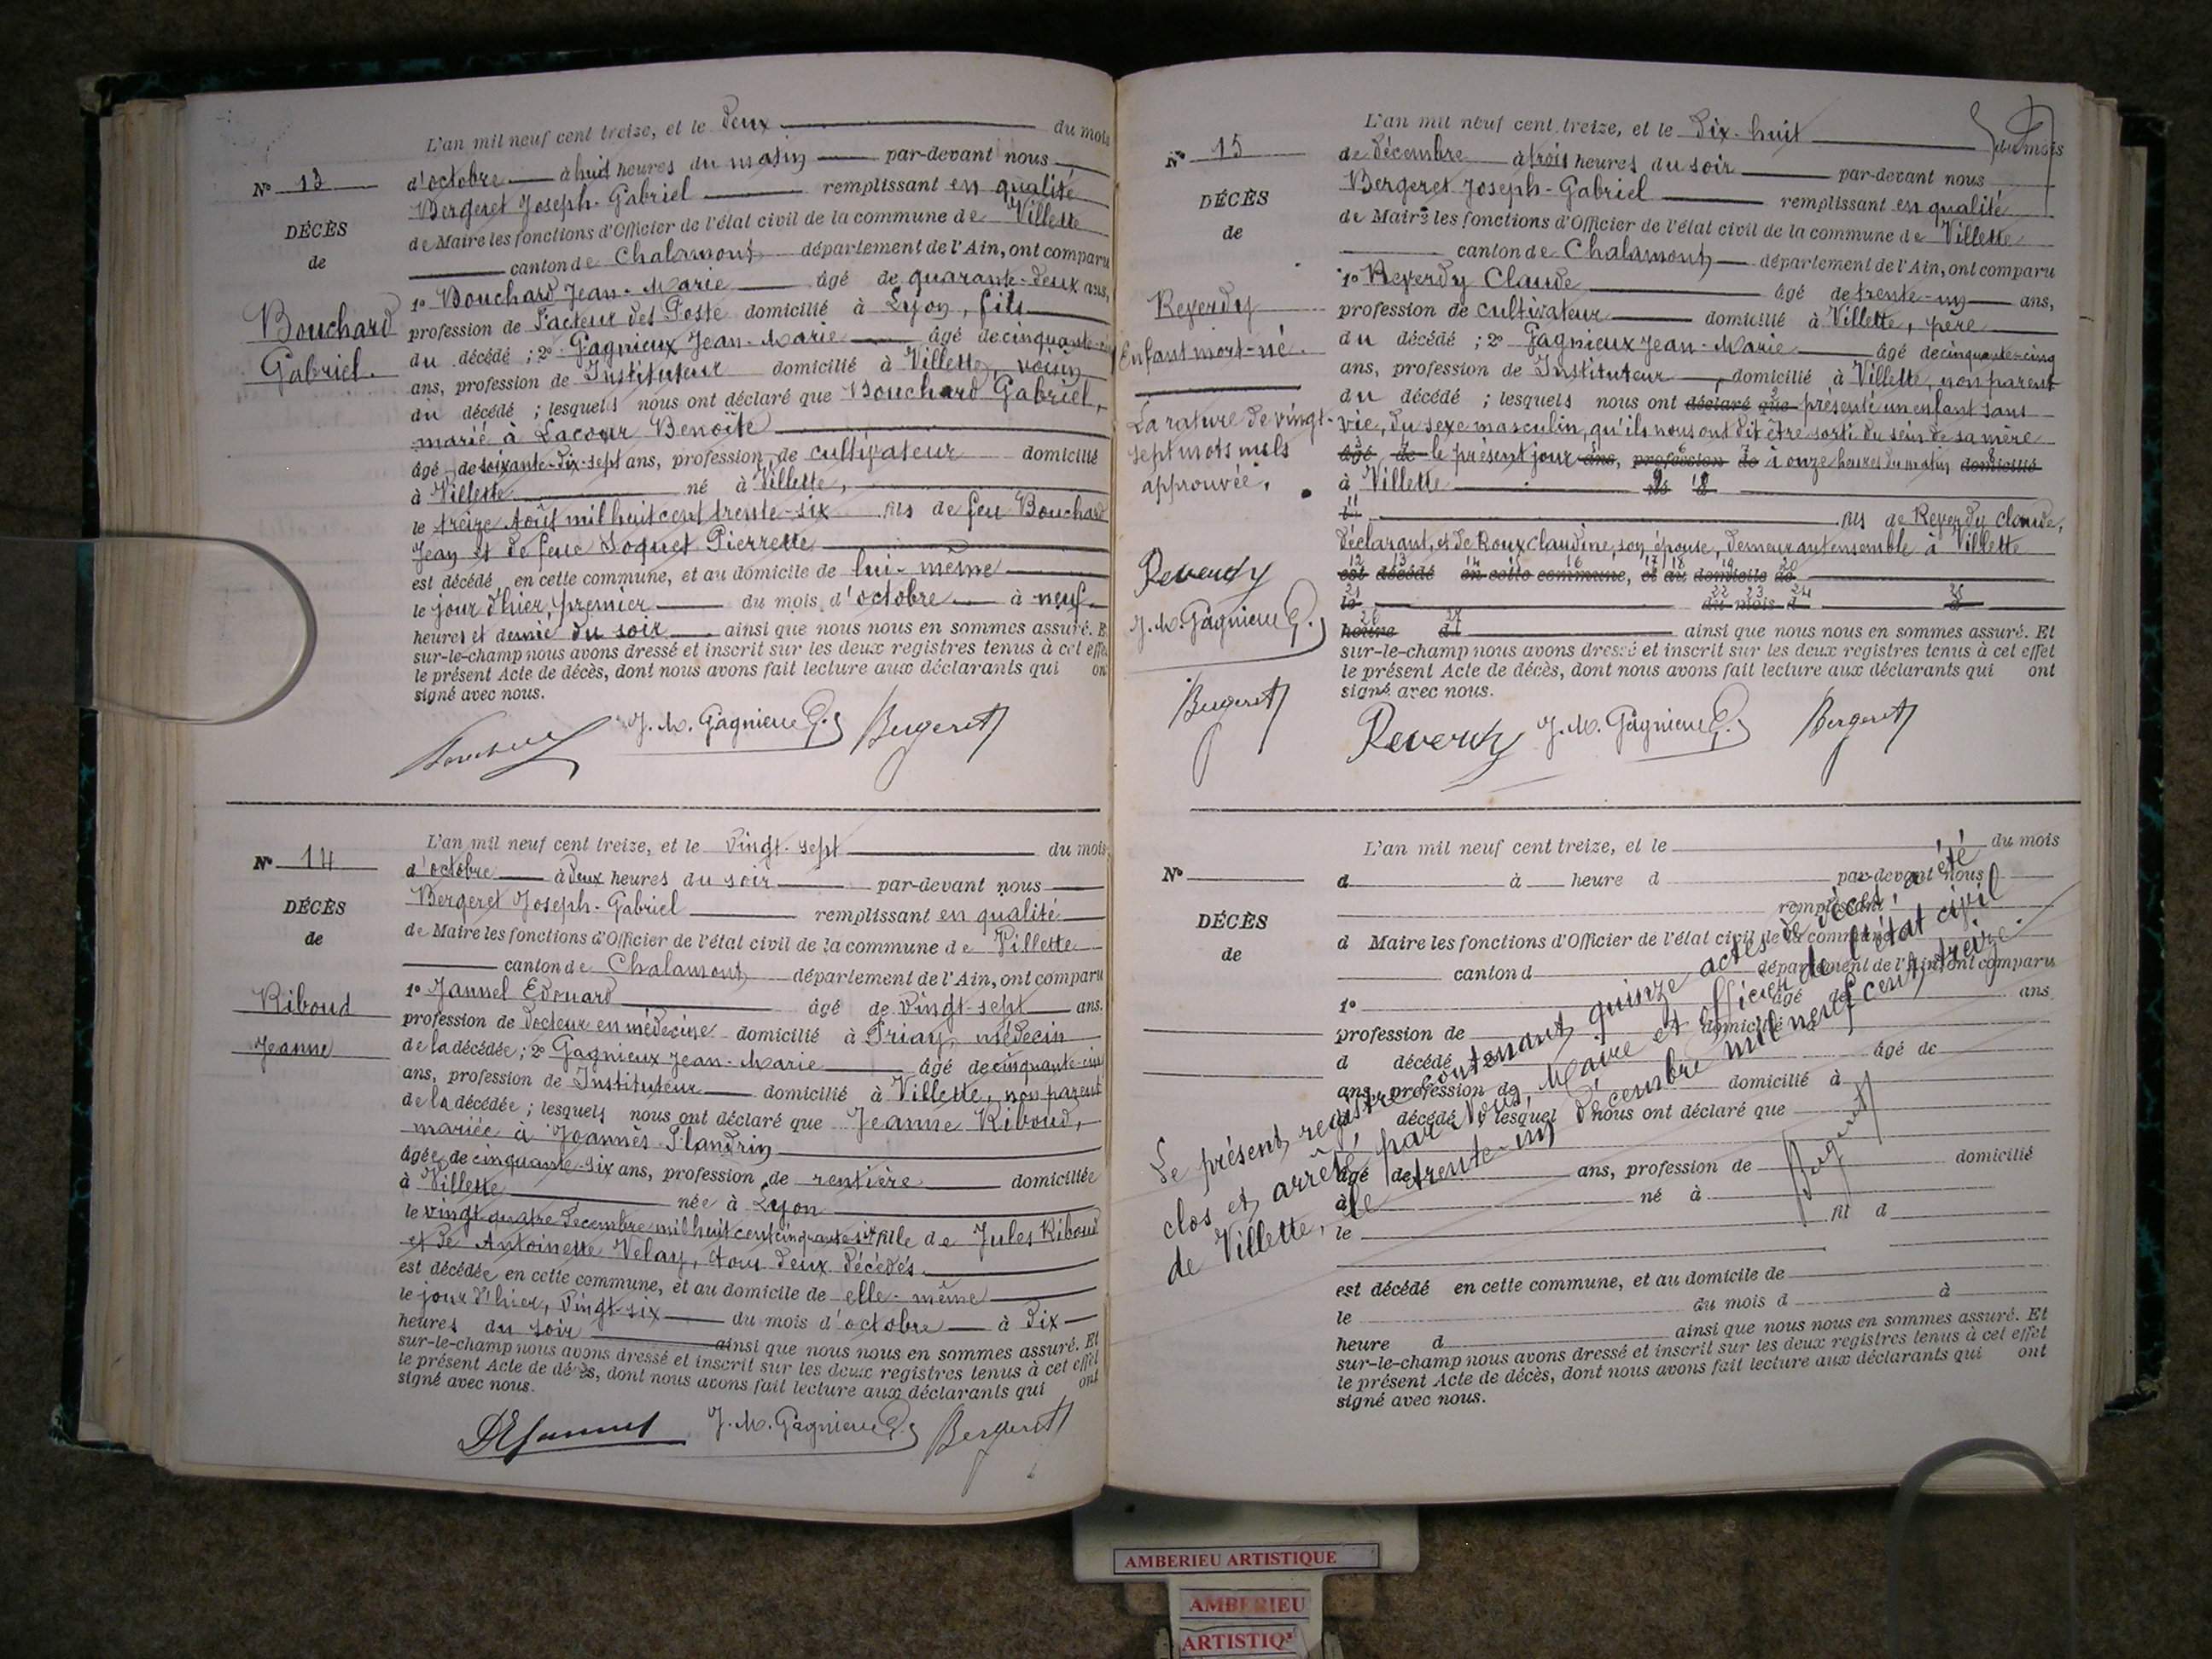 L'an mil neuf cent treize, et le deux du mois
N° 13
d'octobre à huit heures du matin par-devant nous
Bergeret Joseph-Gabriel remplissant en qualité
DÉCÈS
de Maire les fonctions d'Officier de l'état civil de la commune de Villette
de
canton de Chalamont département de l'Ain, ont comparu
1° Bouchard Jean-Marie âgé de quarante-deux ans,
Bouchard
profession de Facteur des Poste domicilié à Lyon, fils
du décédé ; 2° Gagnieux Jean-Marie âgé de cinquante-
Gabriel.
ans, profession de Instituteur domicilié à Villette, voisin
du décédé ; lesquels nous ont déclaré que Bouchard Gabriel,
marié à Lacour Benoîte
âgé de soixante-dix-sept ans, profession de cultivateur domicilié
à Villette né à Villette,
le treize Août mil huit cent trente-six fils de feu Bouchard
Jean et de feue Loquet Pierrette
est décédé en cette commune, et au domicile de lui-même
le jour d'hier, premier du mois d'octobre à neuf
heures et demie du soir ainsi que nous nous en sommes assuré. E
sur-le-champ nous avons dressé et inscrit sur les deux registres tenus à cet effe
le présent Acte de décès, dont nous avons fait lecture aux déclarants qui on
signé avec nous.
J. M. Gagnieux Bergeret
L'an mil neuf cent treize, et le Vingt-sept du mois
N° 14
d'octobre à deux heures du soir par-devant nous
Bergeret Joseph-Gabriel remplissant en qualité
DÉCÈS
de Maire les fonctions d'Officier de l'état civil de la commune de Villette
de
canton de Chalamont département de l'Ain, ont comparu
1° Jannel Édouard âgé de vingt-sept ans.
Riboud
profession de Docteur en médecine domicilié à Priay, médecin
Jeanne
de la décédée ; 2° Gagnieux Jean-Marie âgé de cinquante-cinq
ans, profession de Instituteur domicilié à Villette, non parent
de la décédée ; lesquels nous ont déclaré que Jeanne Riboud,
mariée à Joannès Flandrin
âgée de cinquante-six ans, profession de rentière domiciliée
à Villette née à Lyon
le vingt quatre Décembre mil huit cent cinquante six fille de Jules Riboud
et de Antoinette Velay, tous deux décédés.
est décédée en cette commune, et au domicile de elle-même
le jour d'hier, Vingt-six du mois d'octobre à Dix
heures du soir ainsi que nous nous en sommes assuré. Et
sur-le-champ nous avons dressé et inscrit sur les deux registres tenus à cet effet
le présent Acte de décès, dont nous avons fait lecture aux déclarants qui ont
signé avec nous.
J. M. Gagnieux Bergeret
L'an mil neuf cent treize, et le Dix-huit du mois
N° 15
de Décembre à trois heures du soir par-devant nous
Bergeret Joseph-Gabriel remplissant en qualité
DÉCÈS
de Maire les fonctions d'Officier de l'état civil de la commune de Villette
de
canton de Chalamont département de l'Ain, ont comparu
1° Reverdy Claude âgé de trente-un ans,
Reverdy
profession de cultivateur domicilié à Villette, père
du décédé ; 2° Gagnieux Jean-Marie âgé de cinquante-cinq
Enfant mort-né.
ans, profession de Instituteur, domicilié à Villette, non parent
du décédé ; lesquels nous ont déclaré que présenté un enfant sans
La rature de vingt-
vie, du sexe masculin, qu'ils nous ont dit être sorti du sein de sa mère
sept mots nuls
âgé de le présent jour ans, profession de à onze heures du matin domicilié
approuvée.
à Villette né à
le
fils de Reverdy Claude,
déclarant, et de Roux Claudine, son épouse, demeurant ensemble à Villette
12 13 14 15 16 17 18 19 20
est décédé en cette commune, et au domicile de
Reverdy
21 22 23 24 25
le du mois d à
J. M. Gagnieux
26 27
heure d ainsi que nous nous en sommes assuré. Et
sur-le-champ nous avons dressé et inscrit sur les deux registres tenus à cet effet
le présent Acte de décès, dont nous avons fait lecture aux déclarants qui ont
signé avec nous.
Bergeret
Reverdy J. M. Gagnieux Bergeret
L'an mil neuf cent treize, et le du mois
N°
d à heure d par-devant nous
remplissant
DÉCÈS
d Maire les fonctions d'Officier de l'état civil de la commune
de
canton d département de l'Ain, ont comparu
1° âgé de ans
profession de domicilié à
d décédé âgé de
ans, profession de domicilié à
d décédé ; lesquel nous ont déclaré que
âgé de ans, profession de domicilié
à né à
le fil d
est décédé en cette commune, et au domicile de
le du mois d à
heure d ainsi que nous nous en sommes assuré. Et
sur-le-champ nous avons dressé et inscrit sur les deux registres tenus à cet effet
le présent Acte de décès, dont nous avons fait lecture aux déclarants qui ont
signé avec nous.
Le présent registre contenant quinze actes de décès, a été
clos et arrêté par Nous, Maire et officier de l'état civil
de Villette, le trente-un Décembre mil neuf cent treize.
Bergeret
AMBERIEU ARTISTIQUE
AMBERIEU
ARTISTIQ